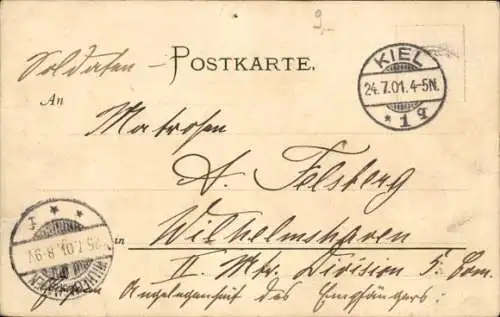 9,-
Soldaten - POSTKARTE.
KIEL
24.7.01.4-5N.
* 1 q
An
Matrosen
A. Felsberg
in Wilhelmshaven
II. Mtr. Division 5. Com.
Angelegenheit des Empfängers:
WILHELMSHAVEN
25.7.01.8-9V.
* * 1